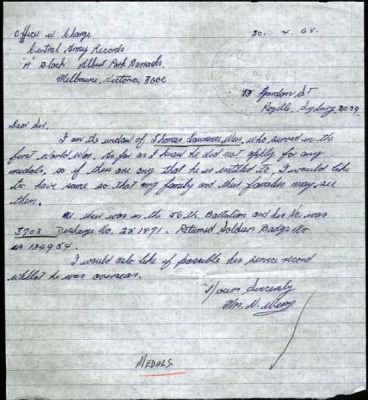 Officer in Charge
Central Army Records
"A" Block Albert Park Barracks
Melbourne, Victoria, 3000
13 Gordon St
Rozelle, Sydney 2039
Dear Sir,
I am the widow of Thomas Lawrence, who served in the
first World War. As far as I know he did not apply for any
medals, so if there are any that he is entitled to, I would like
to have same so that my family and their families may see
them.
was in the 56th Battalion and his No. was
3703 Discharge No. 281871. Returned Soldiers Badge No
I would also like if possible his service record
whilst he was overseas.
Yours Sincerely
MEDALS.